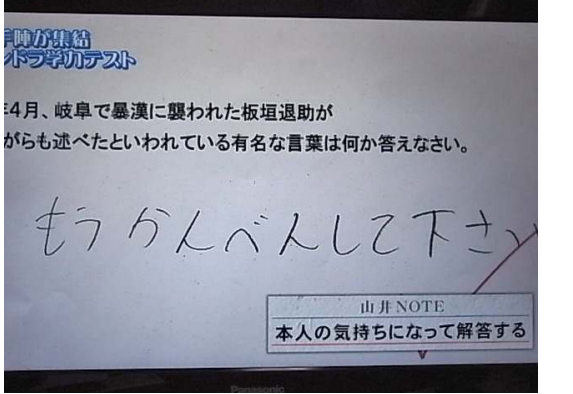 手陣が集結
ンドラ学力テスト
年4月、岐阜で暴漢に襲われた板垣退助が
がらも述べたといわれている有名な言葉は何か答えなさい。
もうかんべんして下さい
山井NOTE
本人の気持ちになって解答する
Panasonic